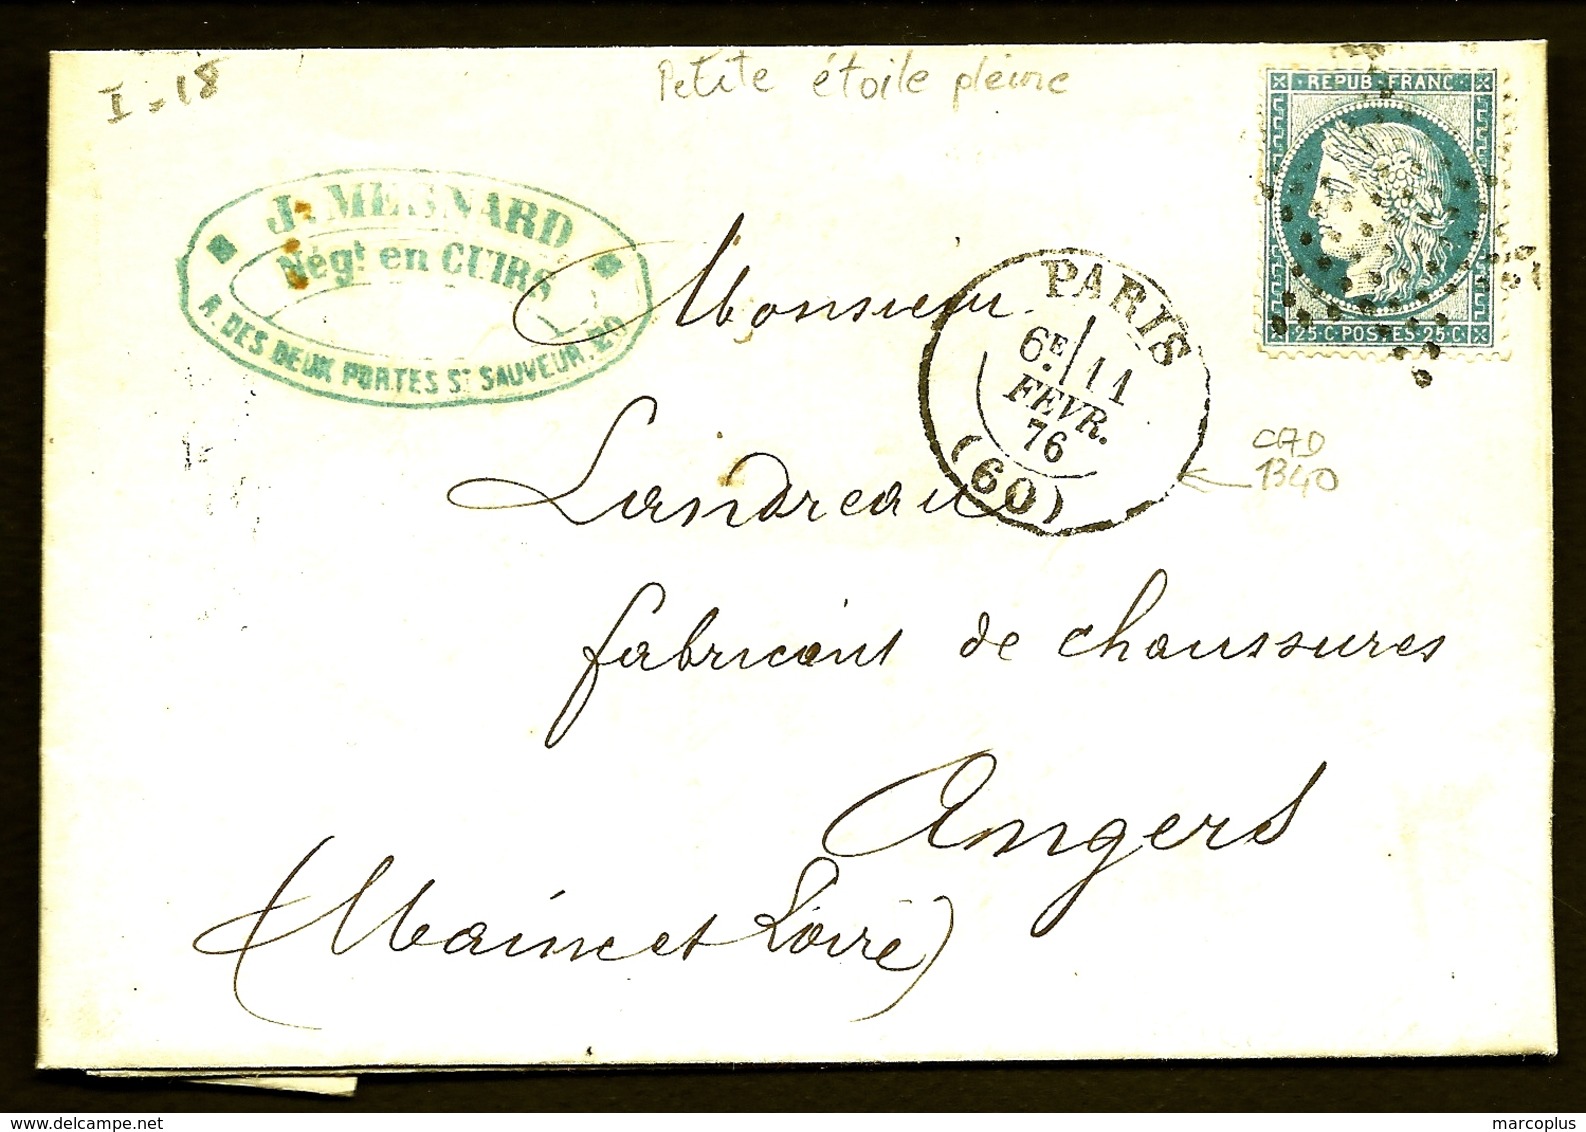 I - 18
Petite étoile pleine
REPUB · FRANC
25 C · POSTES · 25 C
J. MEGNARD
Négt en CUIRS
R. DES DEUX PORTES St SAUVEUR.
PARIS
6E 11
FEVR.
76
(60)
CAD
1340
Monsieur
Landreau
fabricant de chaussures
Angers
(Maine et Loire)
www.delcampe.net
marcoplus